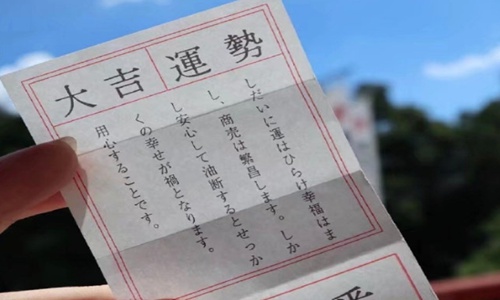 運勢 大吉
しだいに運はひらけ幸福はま
し、商売は繁昌します。しか
し安心して油断するとせっか
くの幸せが禍となります。
用心することです。